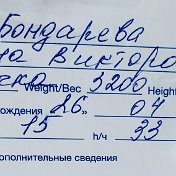 Бондарева
на Викторо
чка
Weight/Вес 3200 Height
ождения 26 » 04
15 h/ч 33
ополнительные сведения